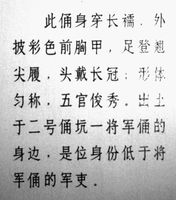 此俑身穿长襦，外
披彩色前胸甲，足登翘
尖履，头戴长冠；形体
匀称，五官俊秀。出土
于二号俑坑一将军俑的
身边，是位身份低于将
军俑的军吏．